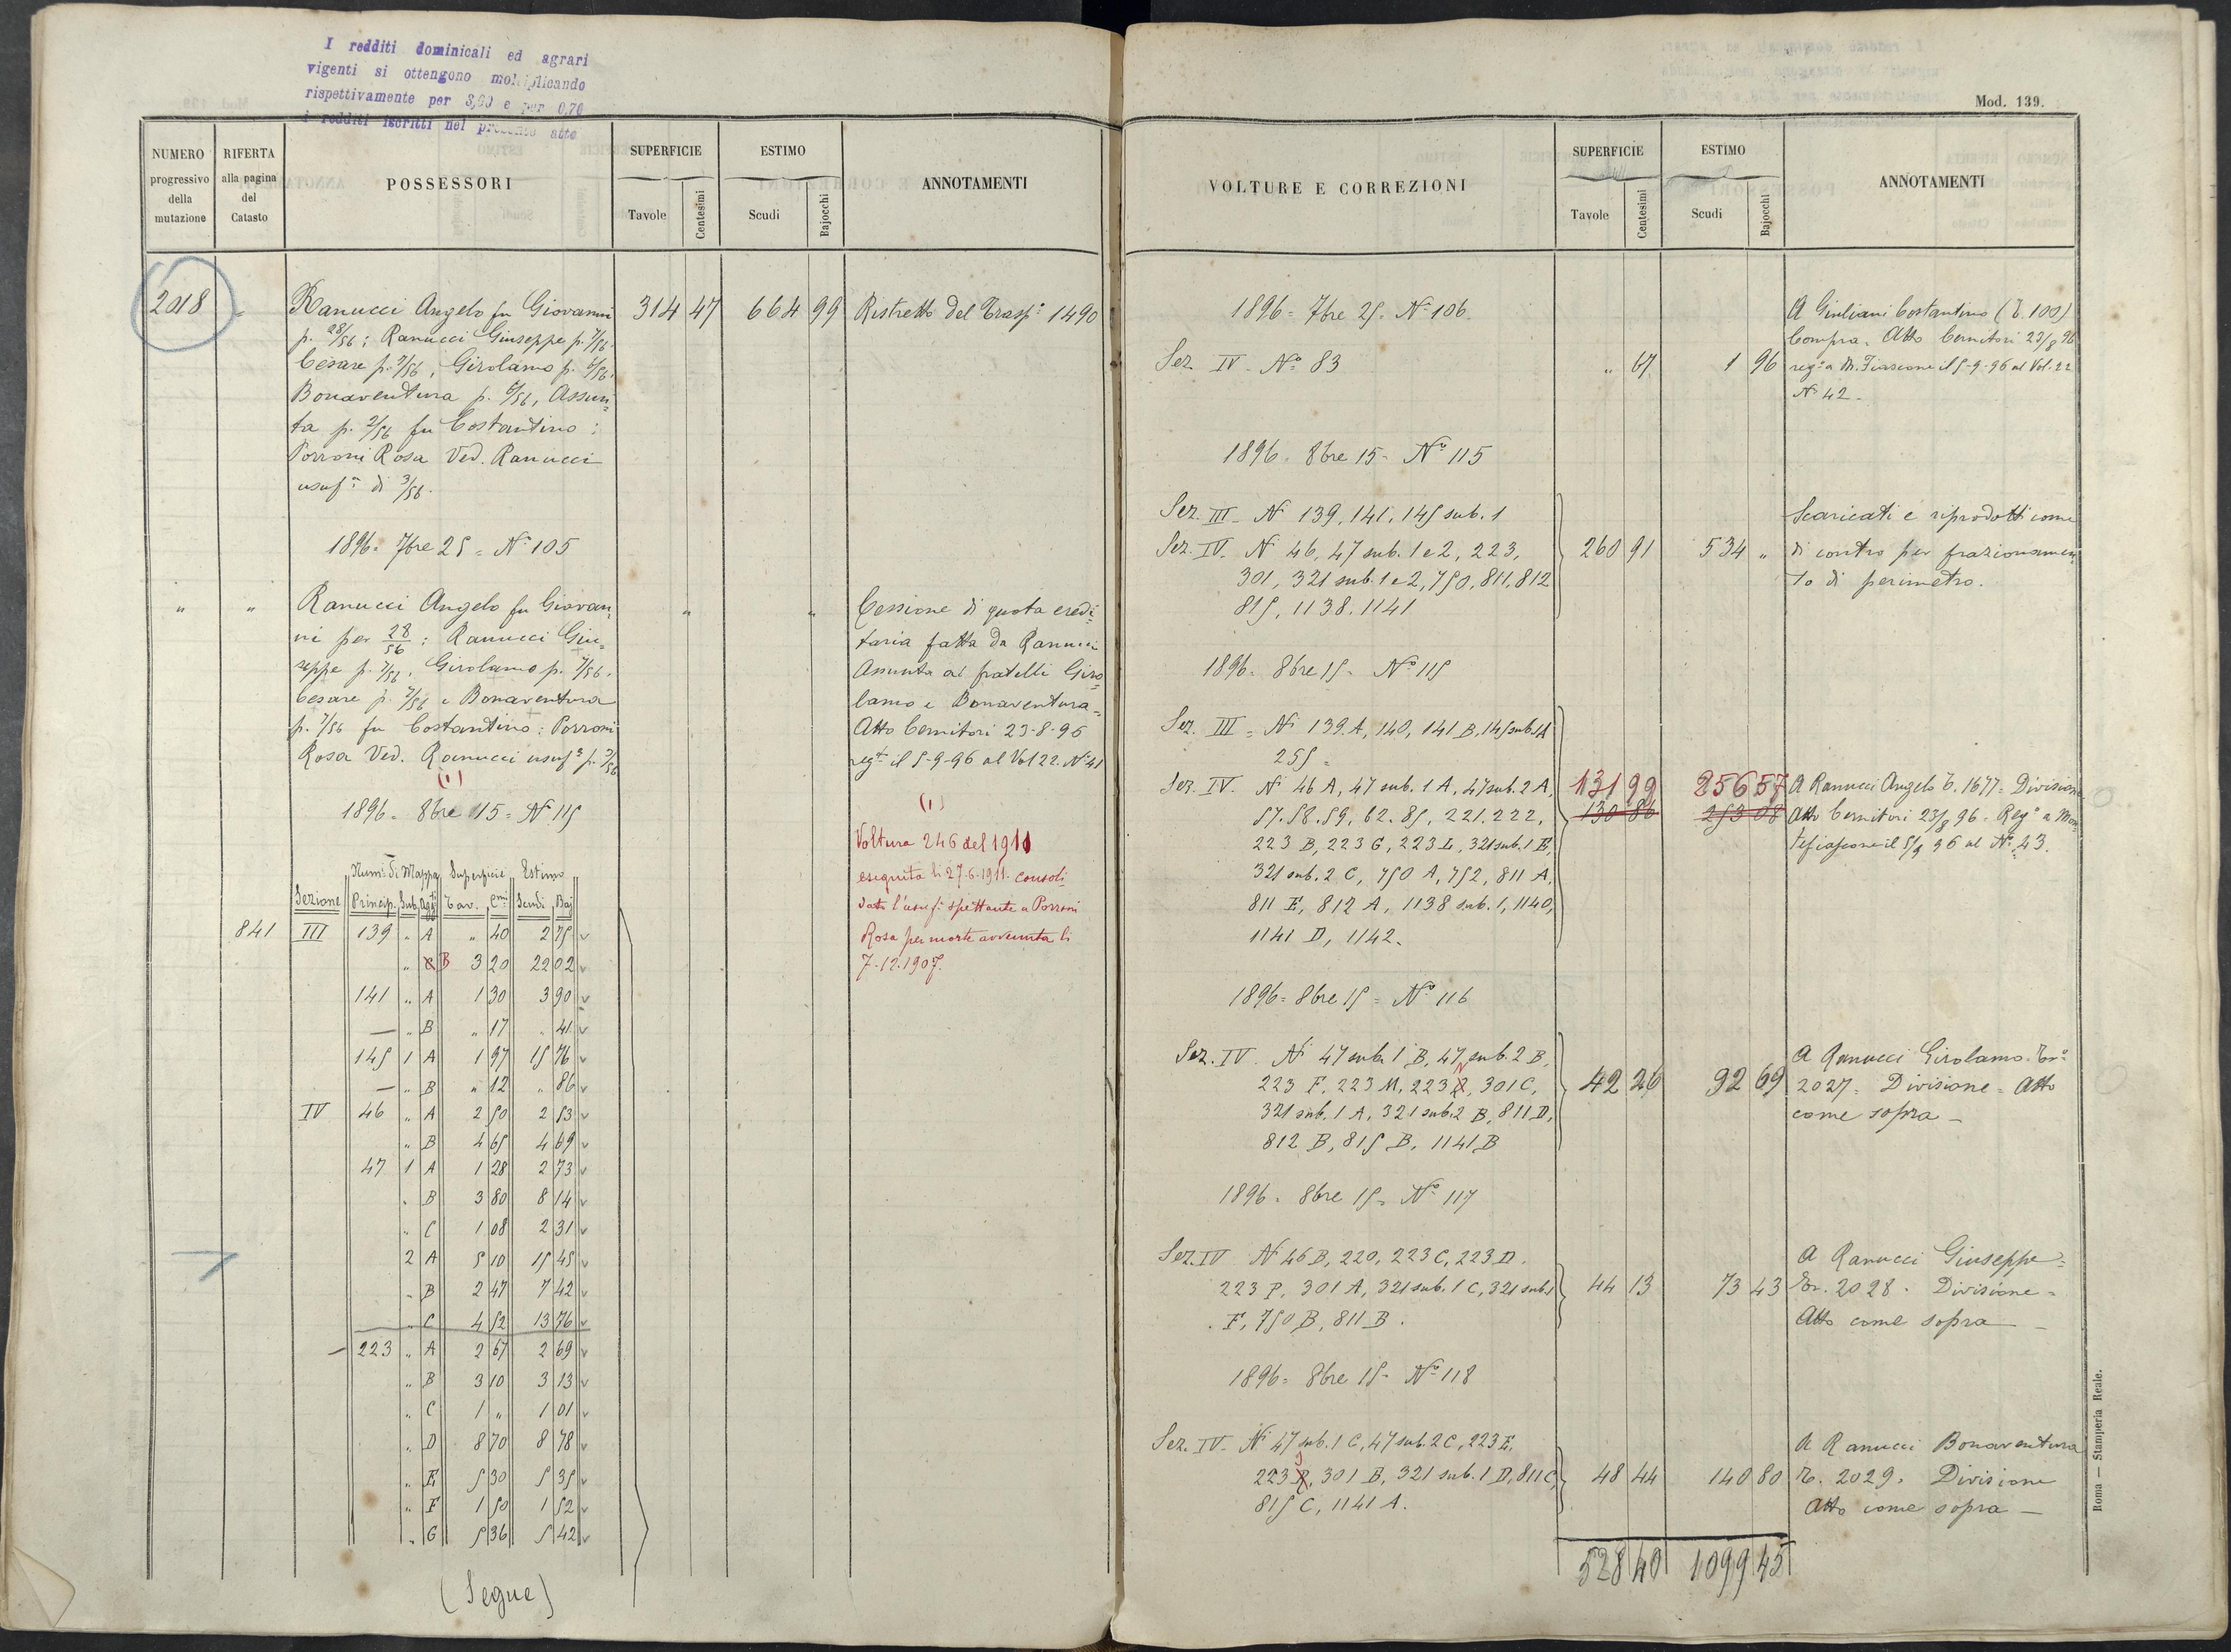 I redditi dominicali ed agrari
vigenti si ottengono moltiplicando
rispettivamente per 3,60 e per 0,70
i redditi iscritti nel presente atto
NUMERO progressivo della mutazione
RIFERTA alla pagina del Catasto
POSSESSORI
SUPERFICIE
Tavole
Centesimi
ESTIMO
Scudi
Bajocchi
ANNOTAMENTI
2018 " Ranucci Angelo fu Giovanni 314 47 664 99 Ristretto del Trasp.º 1490
p. 28/56; Ranucci Giuseppe p. 7/56.
Cesare p. 7/56, Girolamo p. 6/56.
Bonaventura p. 6/56, Assun=
ta p. 2/56 fu Costantino;
Porroni Rosa Ved. Ranucci
usuf.ª di 3/56.
1896= 7bre 25= Nº 105
" " Ranucci Angelo fu Giovan= " " Cessione di quota eredi=
ni per 28/56: Ranucci Giu= taria fatta da Ranucci
seppe p. 7/56, Girolamo p. 7/56. Assunta ai fratelli Giro=
Cesare p. 7/56 e Bonaventura lamo e Bonaventura=
p. 7/56 fu Costantino: Porroni Atto Cernitori 23-8-96
Rosa Ved. Ranucci usuf.ª p. 3/56 reg.to il 5-9-96 al Vol 22. Nº 41
(1)
1896= 8bre 15= Nº 115
(1)
Voltura 246 del 1911
eseguita li 27-6-1911. consoli=
dato l'usuf. spettante a Porroni
Rosa per morte avvenuta li
7.12.1907.
Num.ri di Mappa Superficie Estimo
Sezione Princip. Sub. Agg.ti Tav. C.mi Scudi Baj
841 III 139 " A " 40 2 75 v
" B 3 20 22 02 v
141 " A 1 30 3 90 v
— " B " 17 " 41 v
145 1 A 1 97 15 76 v
— " B " 12 " 86 v
IV 46 " A 2 50 2 53 v
" B 4 65 4 69 v
47 1 A 1 28 2 73 v
" B 3 80 8 14 v
" C 1 08 2 31 v
2 A 5 10 15 45 v
" B 2 47 7 42 v
" C 4 52 13 76 v
— 223 " A 2 67 2 69 v
" B 3 10 3 13 v
" C 1 " 1 01 v
" D 8 70 8 78 v
" E 5 30 5 35 v
" F 1 50 1 52 v
" G 5 36 5 42 v
(Segue)
Mod. 139.
VOLTURE E CORREZIONI
SUPERFICIE
Tavole
Centesimi
ESTIMO
Scudi
Bajocchi
ANNOTAMENTI
1896= 7bre 25. Nº 106. A Giuliani Costantino (T. 100)
Compra. Atto Cernitori 23/8 96
Sez IV. Nº 83 " 67 1 96 reg.º a M. Fiascone il 5-9-96 al Vol. 22
Nº 42.
1896. 8bre 15= Nº 115
Sez. III = Ni 139, 141, 145 sub. 1 Scaricati e riprodotti come
Sez. IV. Ni 46, 47 sub. 1 e 2, 223, 260 91 534 " di contro per frazionamen=
301, 321 sub. 1 e 2, 750, 811, 812 to di perimetro.
815, 1138. 1141
1896. 8bre 15. Nº 115
Sez. III = Ni 139. A, 140, 141 B, 145 sub. 1 A
255=
Sez. IV. Ni 46 A, 47 sub. 1 A, 47 sub. 2 A, 131 99 256 57 A Ranucci Angelo T. 1677= Divisione
57. 58. 59, 62. 85, 221. 222, 130 86 253 08 Atto Cernitori 23/8 96. Reg.º a Mon=
223 B, 223 G, 223 L, 321 sub. 1 E, tefiascone il 5/9 96 al Nº 43.
321 sub. 2 C, 750 A, 752, 811 A,
811 E, 812 A, 1138 sub. 1, 1140,
1141 D, 1142.
1896= 8bre 15= Nº 116
Sez. IV. Ni 47 sub. 1 B, 47 sub. 2 B, A Ranucci Girolamo. Tr.º
223 F, 223 M, 223 N, 301 C, 42 26 92 69 2027. Divisione= Atto
321 sub. 1 A, 321 sub. 2 B, 811 D, come sopra—
812 B, 815 B, 1141 B
1896. 8bre 15. Nº 117
Sez. IV Ni 46 B, 220, 223 C, 223 D. A Ranucci Giuseppe=
223 P, 301 A, 321 sub. 1 C, 321 sub. 1 44 13 73 43 Tr. 2028. Divisione=
F, 750 B, 811 B. Atto come sopra—
1896= 8bre 15. Nº 118
Sez. IV. Ni 47 sub. 1 C, 47 sub. 2 C, 223 E, A Ranucci Bonaventura
223, 301 B, 321 sub. 1 D, 811 C, 48 44 140 80 Tr. 2029. Divisione
815 C, 1141 A. Atto come sopra—
528 40 1099 45
Roma — Stamperia Reale.